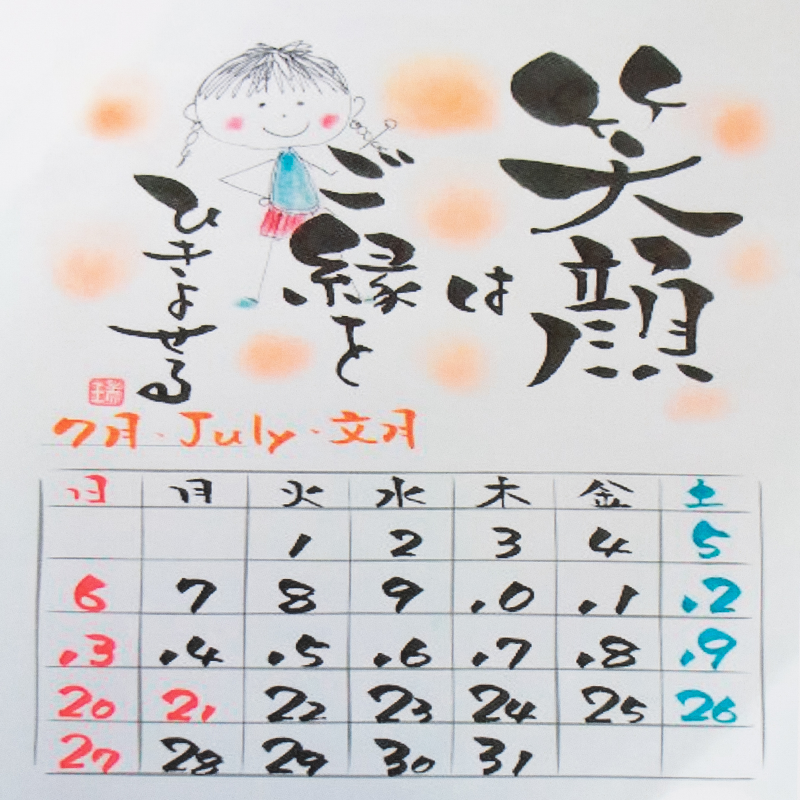 笑顔
は
ご縁を
ひきよせる
瑞
7月・July・文月
日 月 火 水 木 金 土
1 2 3 4 5
6 7 8 9 10 11 12
13 14 15 16 17 18 19
20 21 22 23 24 25 26
27 28 29 30 31